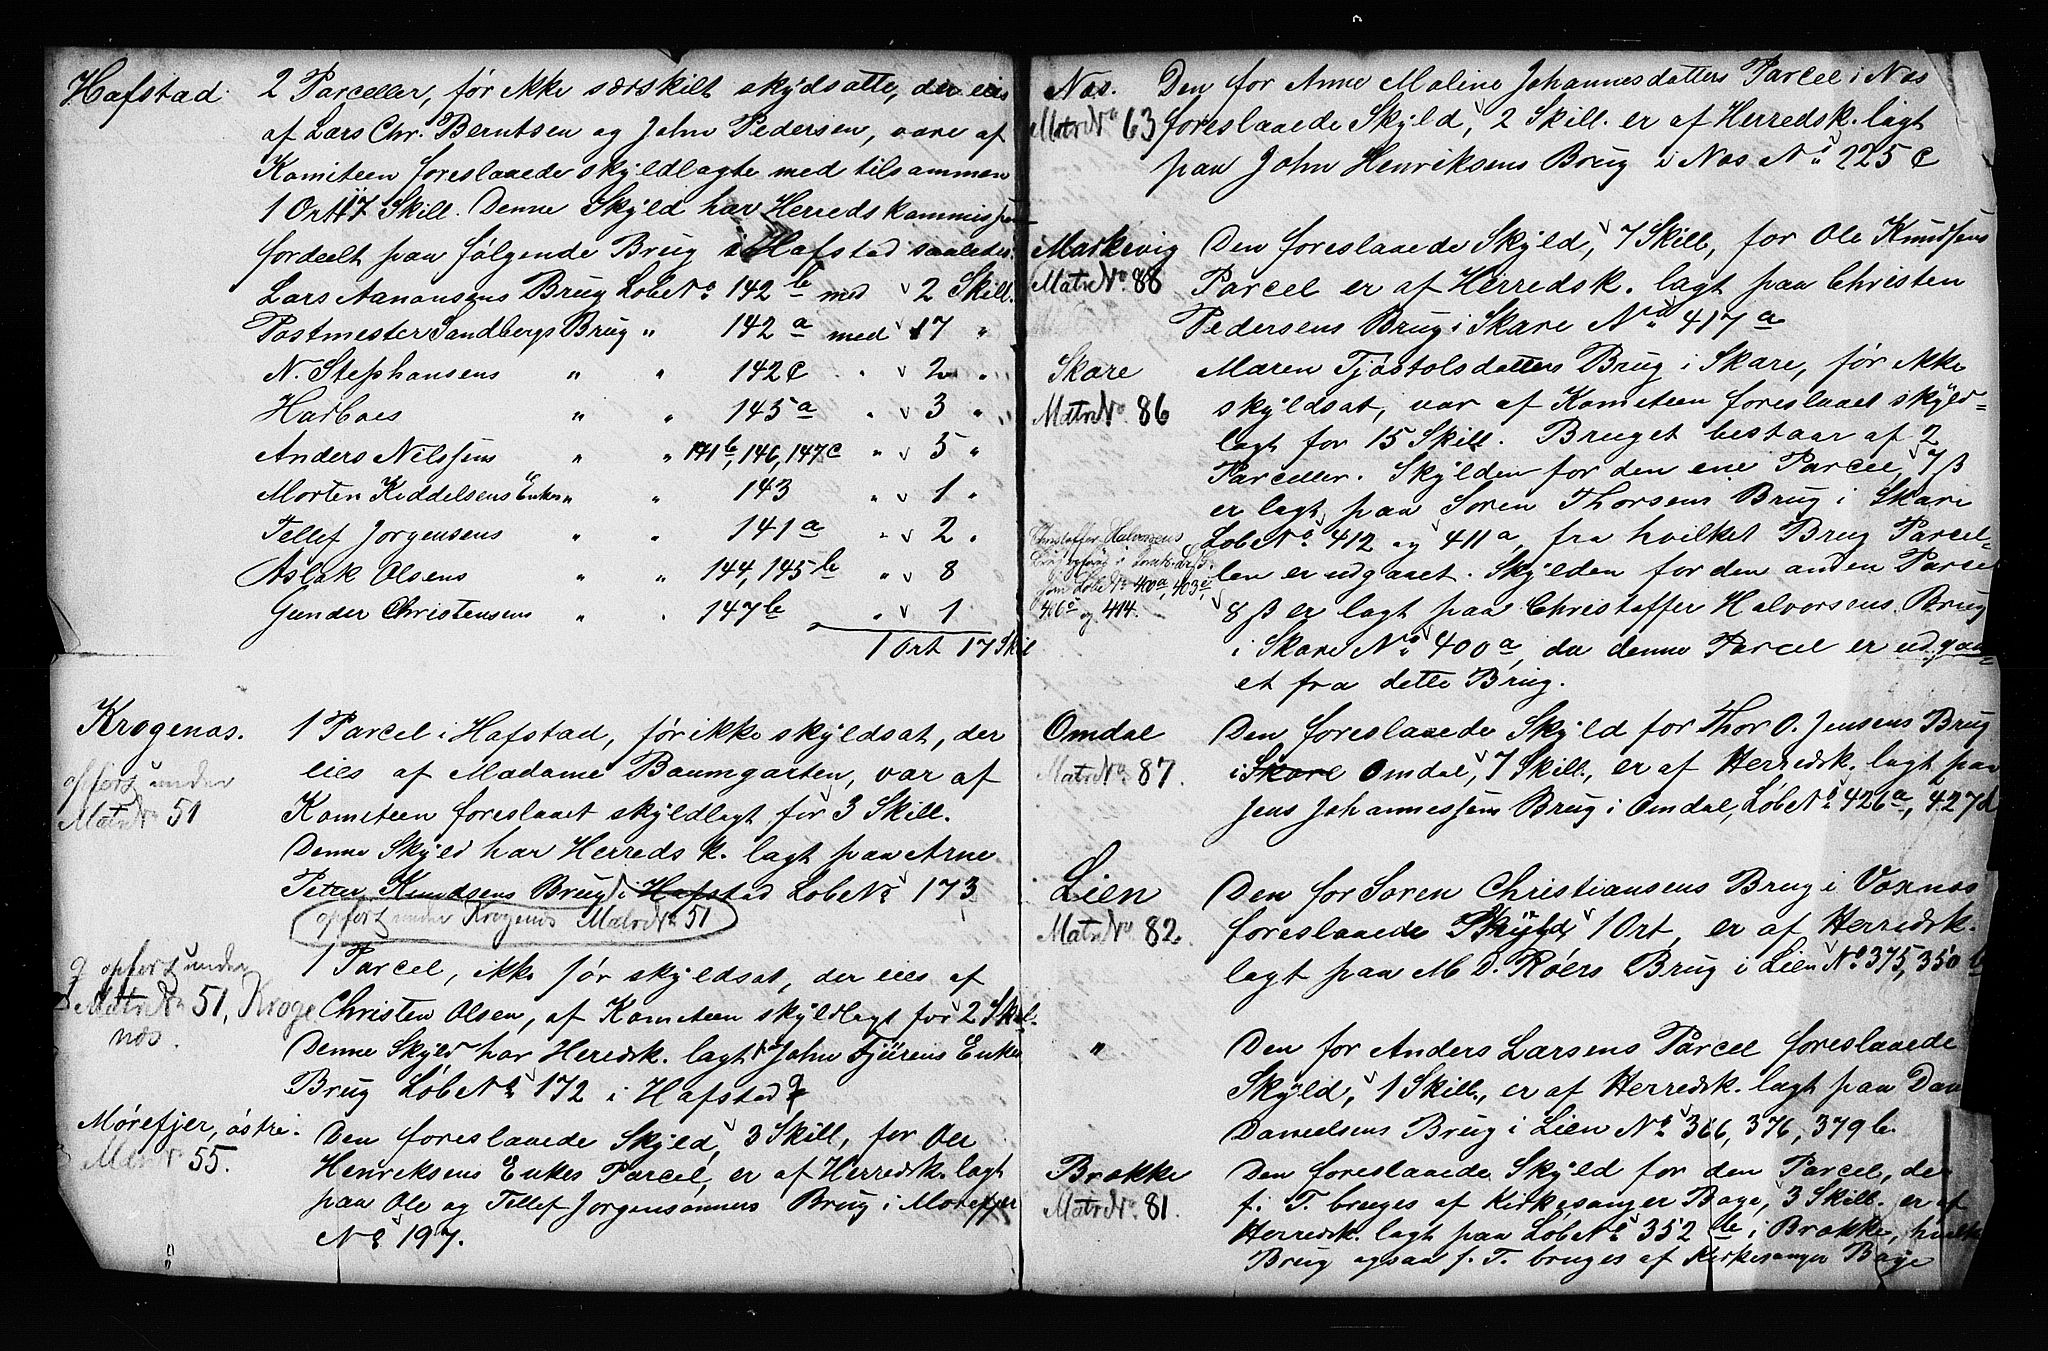 Hafstad. 2 Parceller, før ikke særskilt skyldsatte, der eies
af Lars Chr. Berntsen og John Pedersen, vare af
Komiteen foreslaaede skyldlagte med tilsammen
1 Ort 17 Skill. Denne Skyld har Herredskommiss
fordeelt paa følgende Brug i Hafstad saaledes:
Lars Aanonsens Brug Løbe No 142 b med 2 Skill.
Postmester Sandbergs Brug " 142 a med 17 "
N. Stephansens " " 142 c " 2 "
Harboes " " 145 a " 3 "
Anders Nilssens " " 141 b, 146, 147 c " 5 "
Morten Kiddelsens Enkes " " 143 " 1 "
Tellef Jørgensens " " 141 a " 2 "
Aslak Olsens " " 144, 145 b " 8
Gunder Christensens " " 147 b " 1
1 Ort 17 Skil
Krogenæs. 1 Parcel i Hafstad, før ikke skyldsat, der
opført under eies af Madame Baumgarten, var af
Matr No 51 Komiteen foreslaaet skyldlagt for 3 Skill.
Denne Skyld har Herredsk. lagt paa Arne
Peter Knudsens Brug i Hafstad Løbe No 173
opført under Krogenæs Matr No 51
opført under 1 Parcel, ikke før skyldsat, der eies af
Matr No 51, Kroge Christen Olsen, af Komiteen skyldlagt for 2 Skil.
næs. Denne Skyld har Heredsk. lagt John Fjürens Enkes
Brug Løbe No 172 i Hafstad
Mørefjer, østre. Den foreslaaede Skyld, 3 Skill, for Ole
Matr No 55. Henriksens Enkes Parcel, er af Herredsk. lagt
paa Ole og Tellef Jørgensønners Brug i Mørefjer
No 197.
Næs. Den for Anne Maline Johannesdatters Parcel i Næs
Matr No 63 foreslaaede Skyld, 2 Skill. er af Herredsk. lagt
paa John Henriksens Brug i Næs No 225 c
Markevig Den foreslaaede Skyld, 7 Skill, for Ole Knudsens
Matr No. 88 Parcel er af Herredsk. lagt paa Christen
Pedersens Brug i Skare No 417 a
Skare Maren Tjøstolsdatters Brug i Skare, før ikke
Matr No. 86 skyldsat, var af Komiteen foreslaaet skyld=
lagt for 15 Skill. Bruget bestaar af 2
Parceller. Skylden for den ene Parcel, 7 ß
er lagt paa Søren Thorsens Brug i Skare
Christoffer Halvorsens Løbe No 412 og 411 a, fra hvilket Brug Parcel=
len er udgaaet. Skylden for den anden Parcel
som Løbe No 400 a, 403 c, 8 ß er lagt paa Christoffer Halvorsens Brug
406 c og 414. i Skare No 400 a, da denne Parcel er udgaa=
et fra dette Brug.
Omdal Den foreslaaede Skyld for Thor O. Jensens Brug
Matr No 87. i Skare Omdal, 7 Skill, er af Herredsk. lagt paa
Jens Johannessens Brug i Omdal, Løbe No 426 a, 427 d
Lien Den for Søren Christiansens Brug i Voxnæs
Matr No 82. foreslaaede Skyld, 1 Ort, er af Herredsk.
lagt paa M D. Røers Brug i Lien No 375, 350 b
" Den for Anders Larsens Parcel foreslaaede
Skyld, 1 Skill., er af Herredsk. lagt paa Dan
Danielsens Brug i Lien No 366, 376, 379 b.
Brække Den foreslaaede Skyld for den Parcel, der
Matr No. 81. f. T. bruges af Kirkesanger Bøge, 3 Skill. er af
Herredsk. lagt paa Løbe No 352 b i Brække, hvilket
Brug ogsaa f. T. bruges af Kirkesanger Bøge